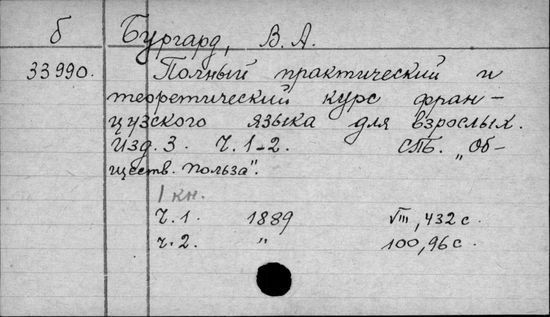 б Бургард, В. А.
33990. Полный практический и
теоретический курс фран-
цузского языка для взрослых.
Изд. 3. Ч. 1-2. СПб. „Об-
ществ. польза".
1 кн.
Ч. 1. 1889 VIII, 432 с.
ч. 2. " 100, 96 с.